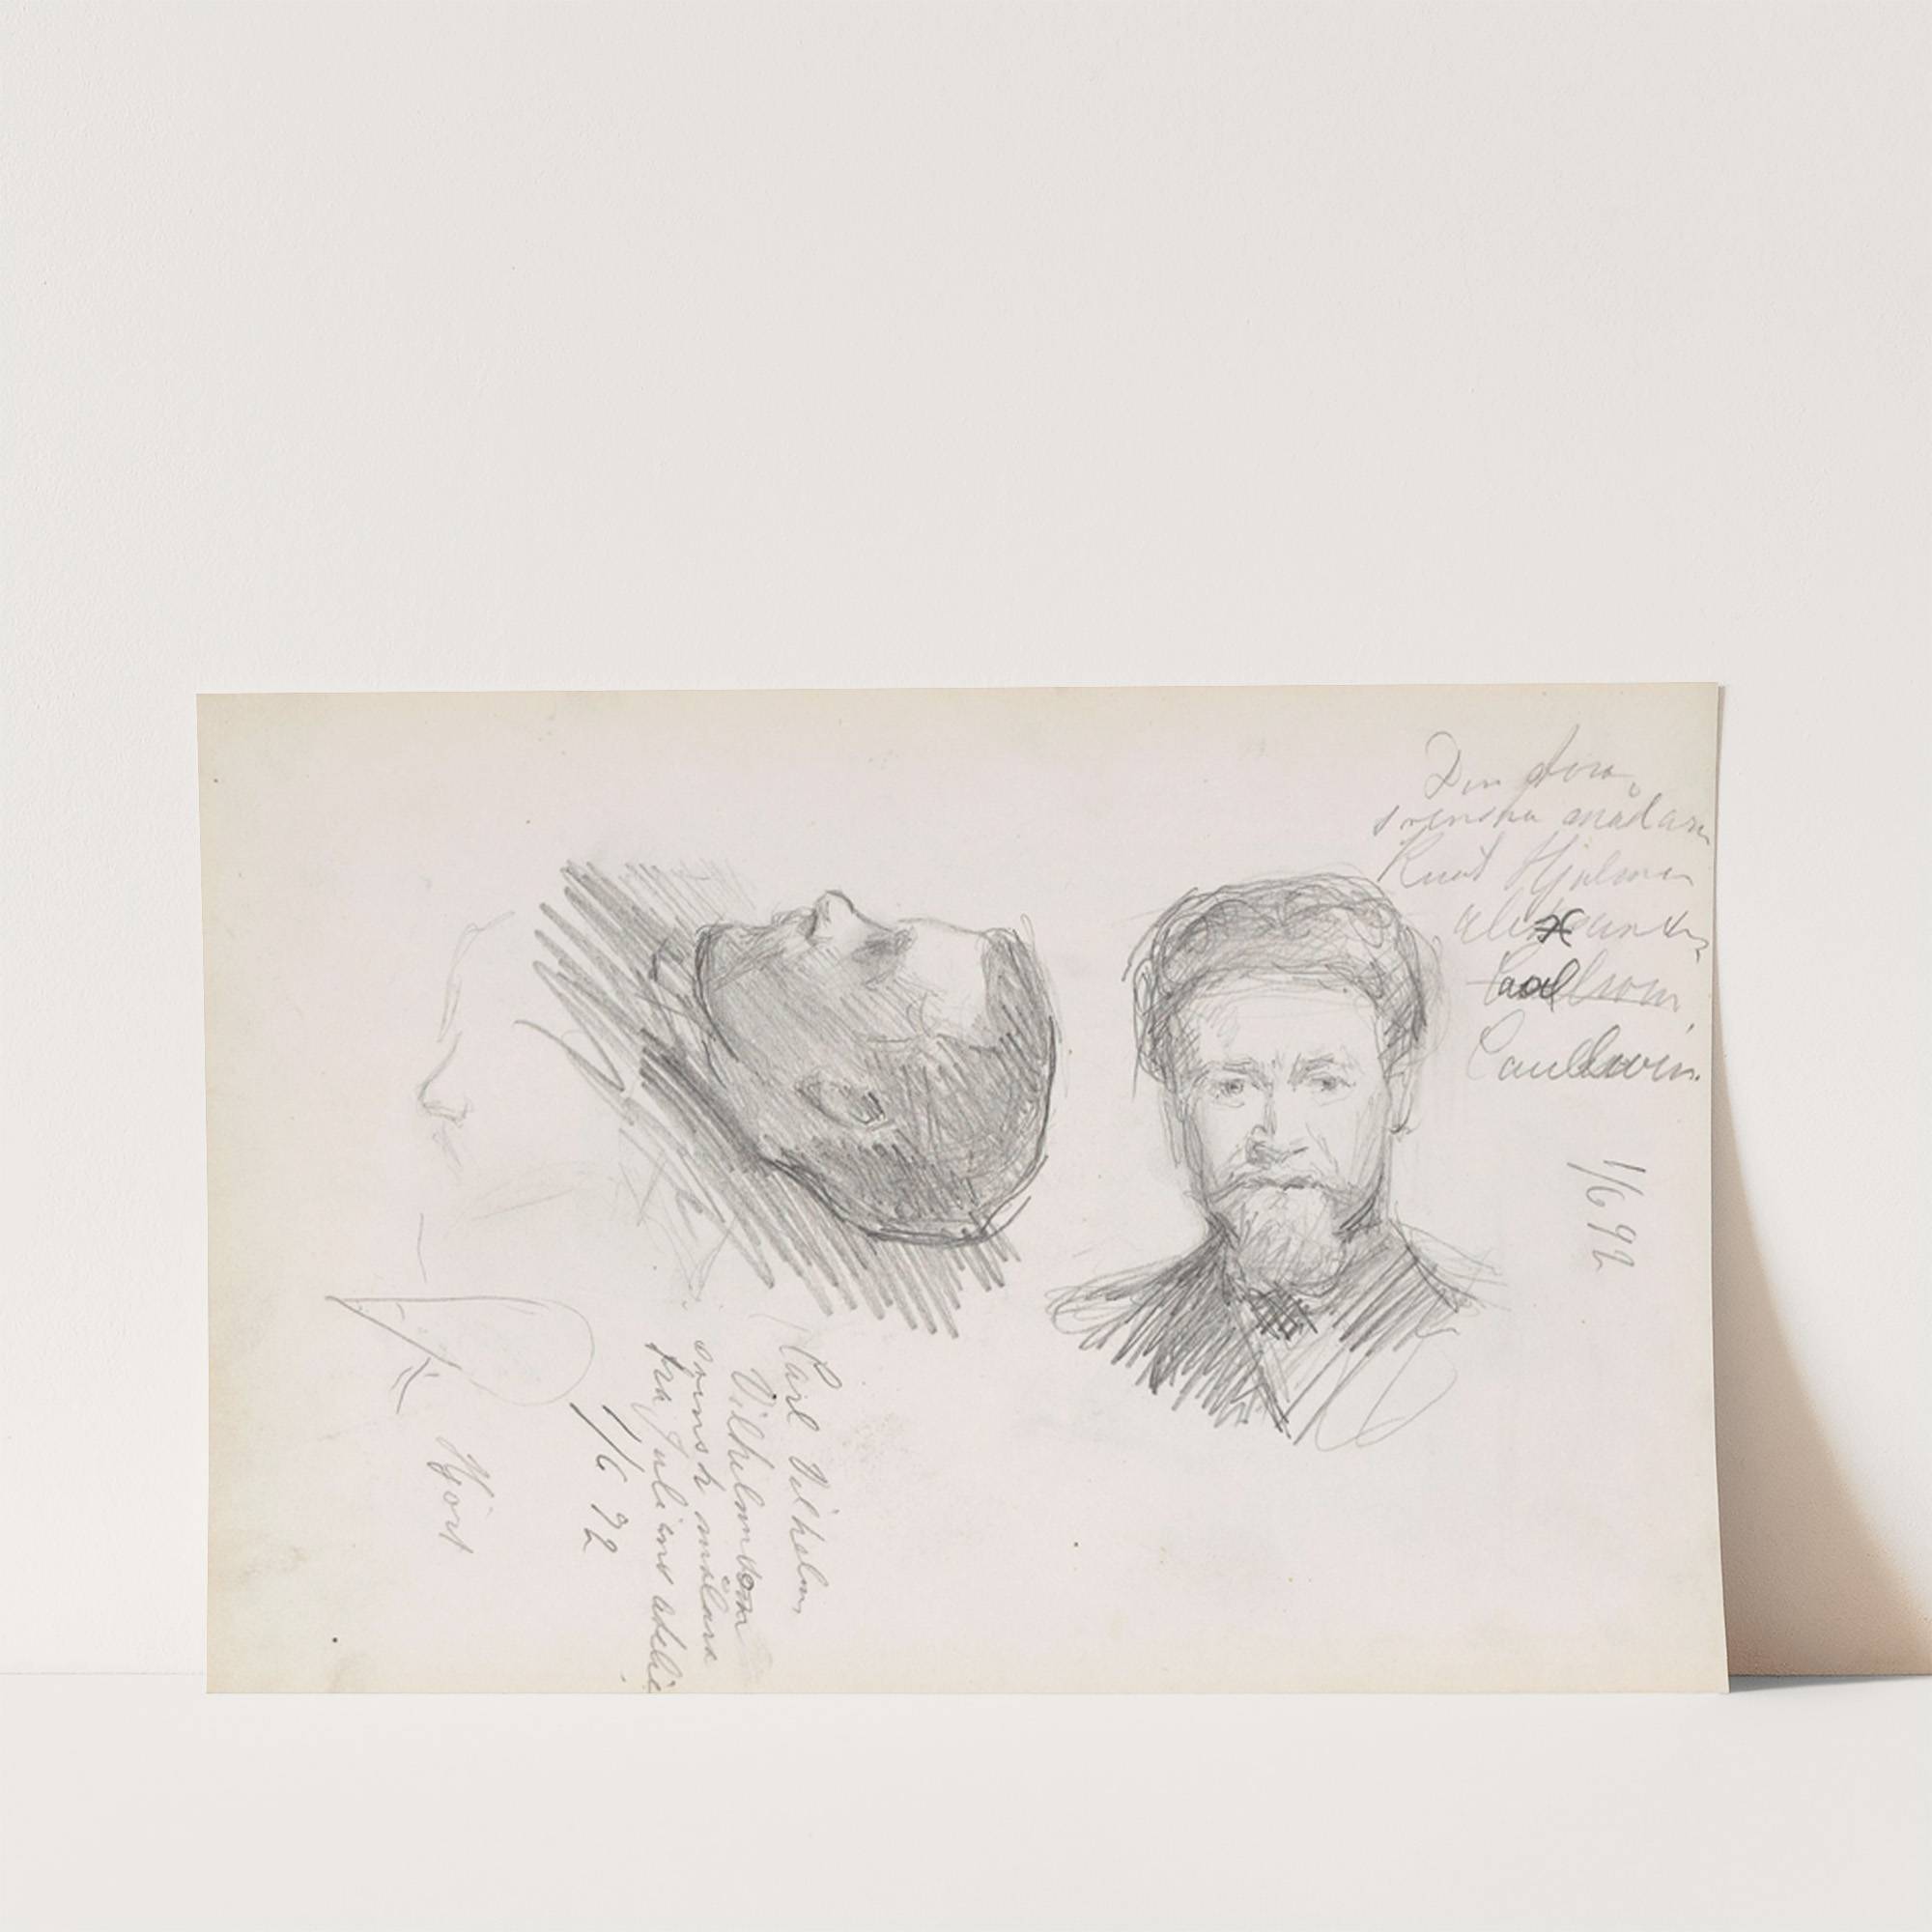 Den stora
svenska målaren
Knut Hjalmar
Alexander
Caullawin.
1/6 92
Carl Vilhelm,
Vilhelmsson
svensk målare
fra Julians atelié
1/6 92
Hjort